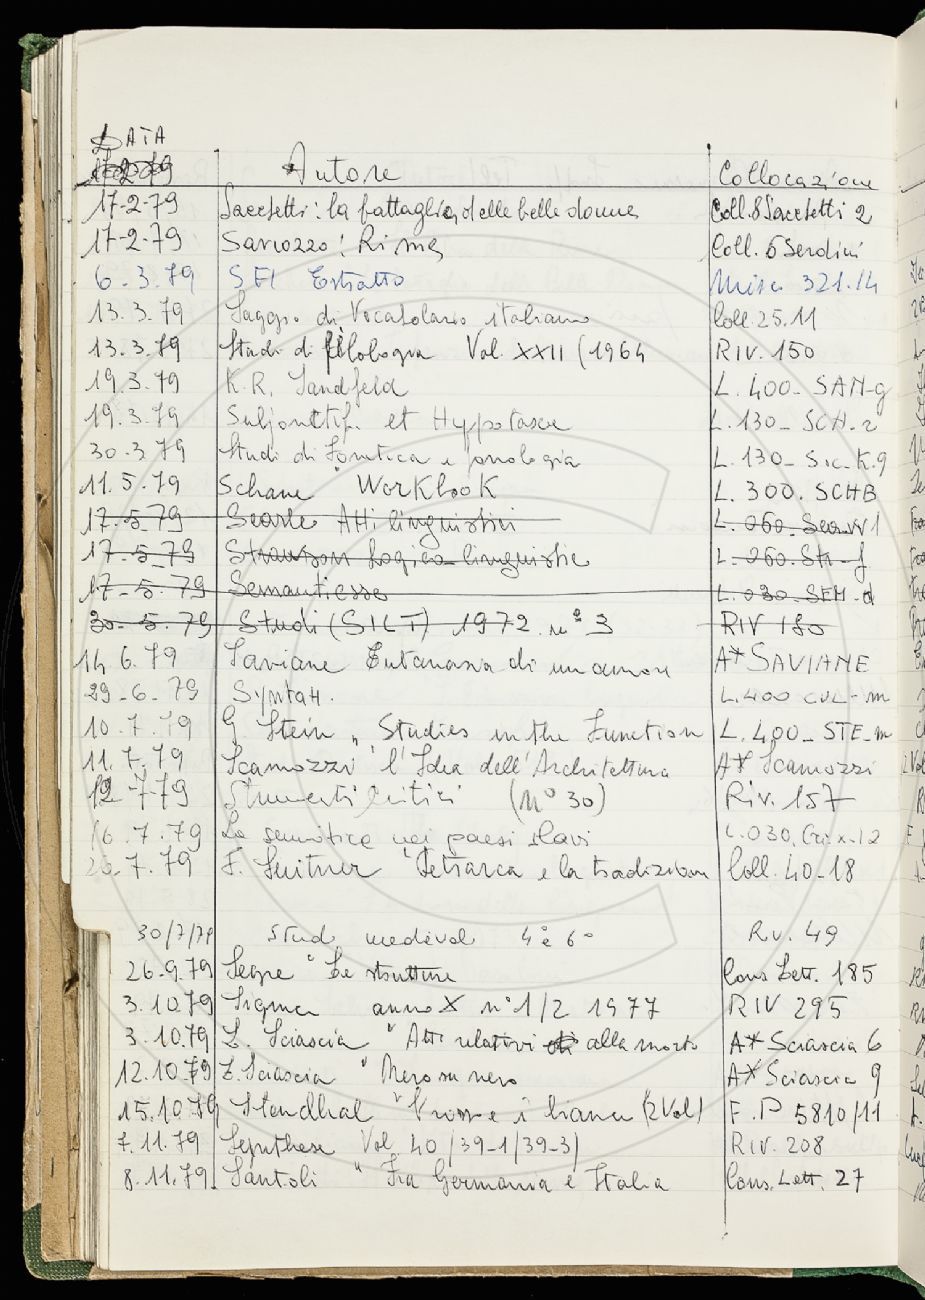 DATA Autore Collocazione
17-2-79 Sacchetti: la battaglia delle belle donne Coll. 8 Sacchetti 2
17-2-79 Saviozzo: Rime Coll. 5 Serdini
6.3.79 SFI Estratto Misc. 321.14
13.3.79 Saggio di Vocabolario italiano Coll. 25.11
13.3.79 Studi di filologia Vol. XXII (1964 RIV. 150
19.3.79 K.R. Sandfeld L. 400- SAN-g
19.3.79 Subjonctif et Hypotaxe L. 130_ SCH-2
30.3.79 Studi di Fonetica e fonologia L. 130_ Sic. K.9
11.5.79 Schane "Workbook L. 300. SCHB
17.5.79 Searle Atti linguistici L. 060. Sea-v1
17-5-79 Strawson Logico linguistic L. 060. Str-f
17-5.79 L. 030. SEM-d
30-5.79 Studi (SILT) 1972 n° 3 RIV 180
14.6.79 Saviane Eutanasia di un amore A* SAVIANE
29.6.79 L. 400 CUL-m
10.7.79 G. Stein " Studies in the Function L. 400_ STE-m
11.7.79 Scamozzi l'Idea dell'Architettura A* Scamozzi
12-7-79 Strumenti Critici (N° 30) Riv. 157
16.7.79 La semiotica nei paesi slavi L. 030.
26.7.79 F. Suitner "Petrarca e la tradizion Coll. 40-18
30/7/79 Studi medievali 4° e 6° Riv. 49
26.9.79 Segre "Le strutture Cons. Lett. 185
3.10.79 Sigma anno X n° 1/2 1977 RIV 295
3.10.79 L. Sciascia "Atti relativi alla morte A* Sciascia 6
12.10.79 L. Sciascia "Nero su nero A* Sciascia 9
15.10.79 Stendhal "Il rosso e il bianco (2 Vol) F. P 5810/11
7.11.79 Vol 40/39-1/39-3) RIV. 208
8.11.79 Santoli "Fra Germania e Italia Cons. Lett. 27